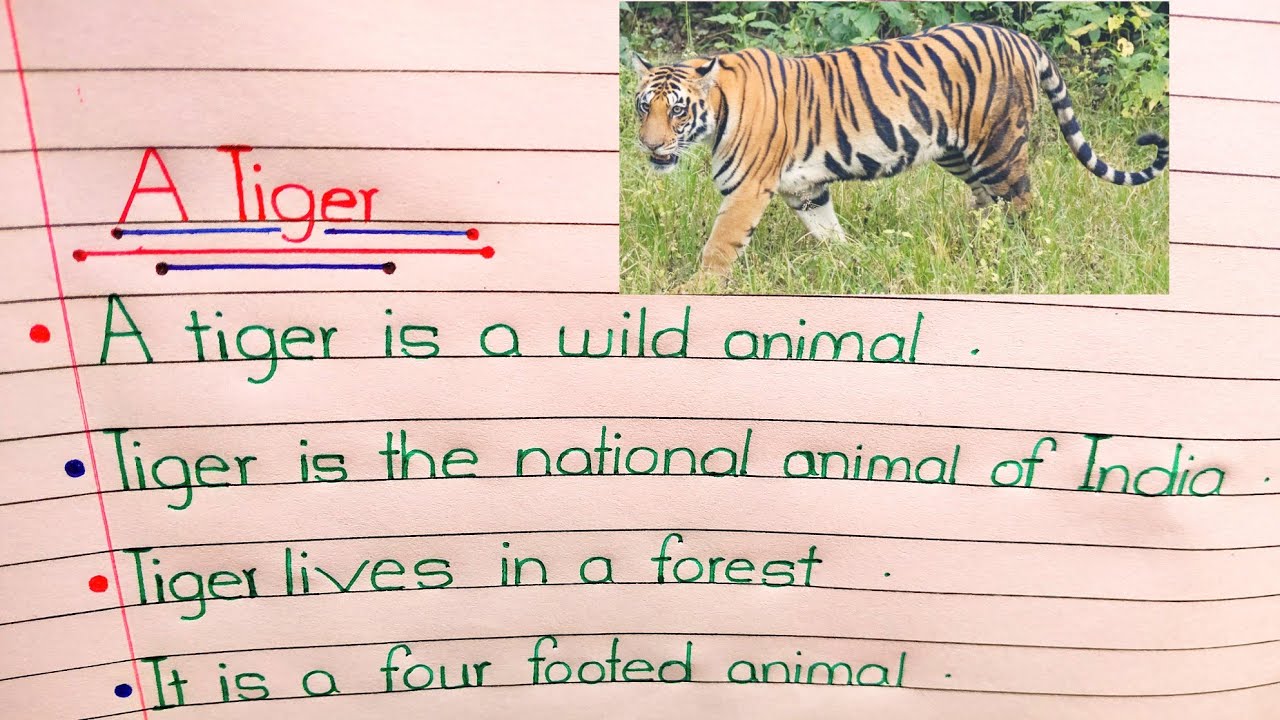 A Tiger
A tiger is a wild animal .
Tiger is the national animal of India .
Tiger lives in a forest .
It is a four footed animal .